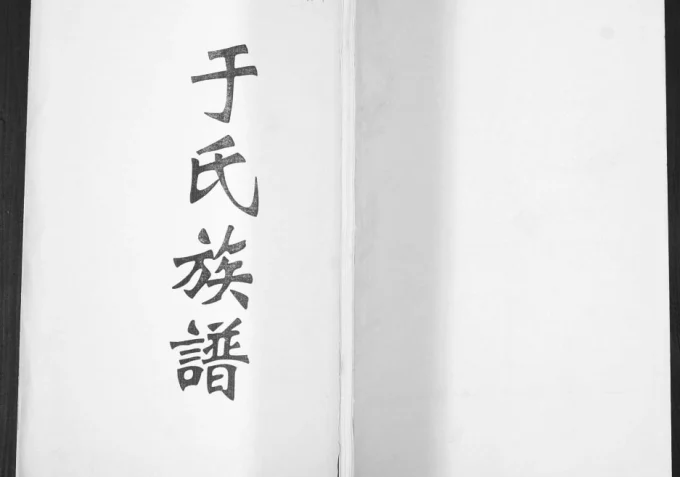 于氏族譜